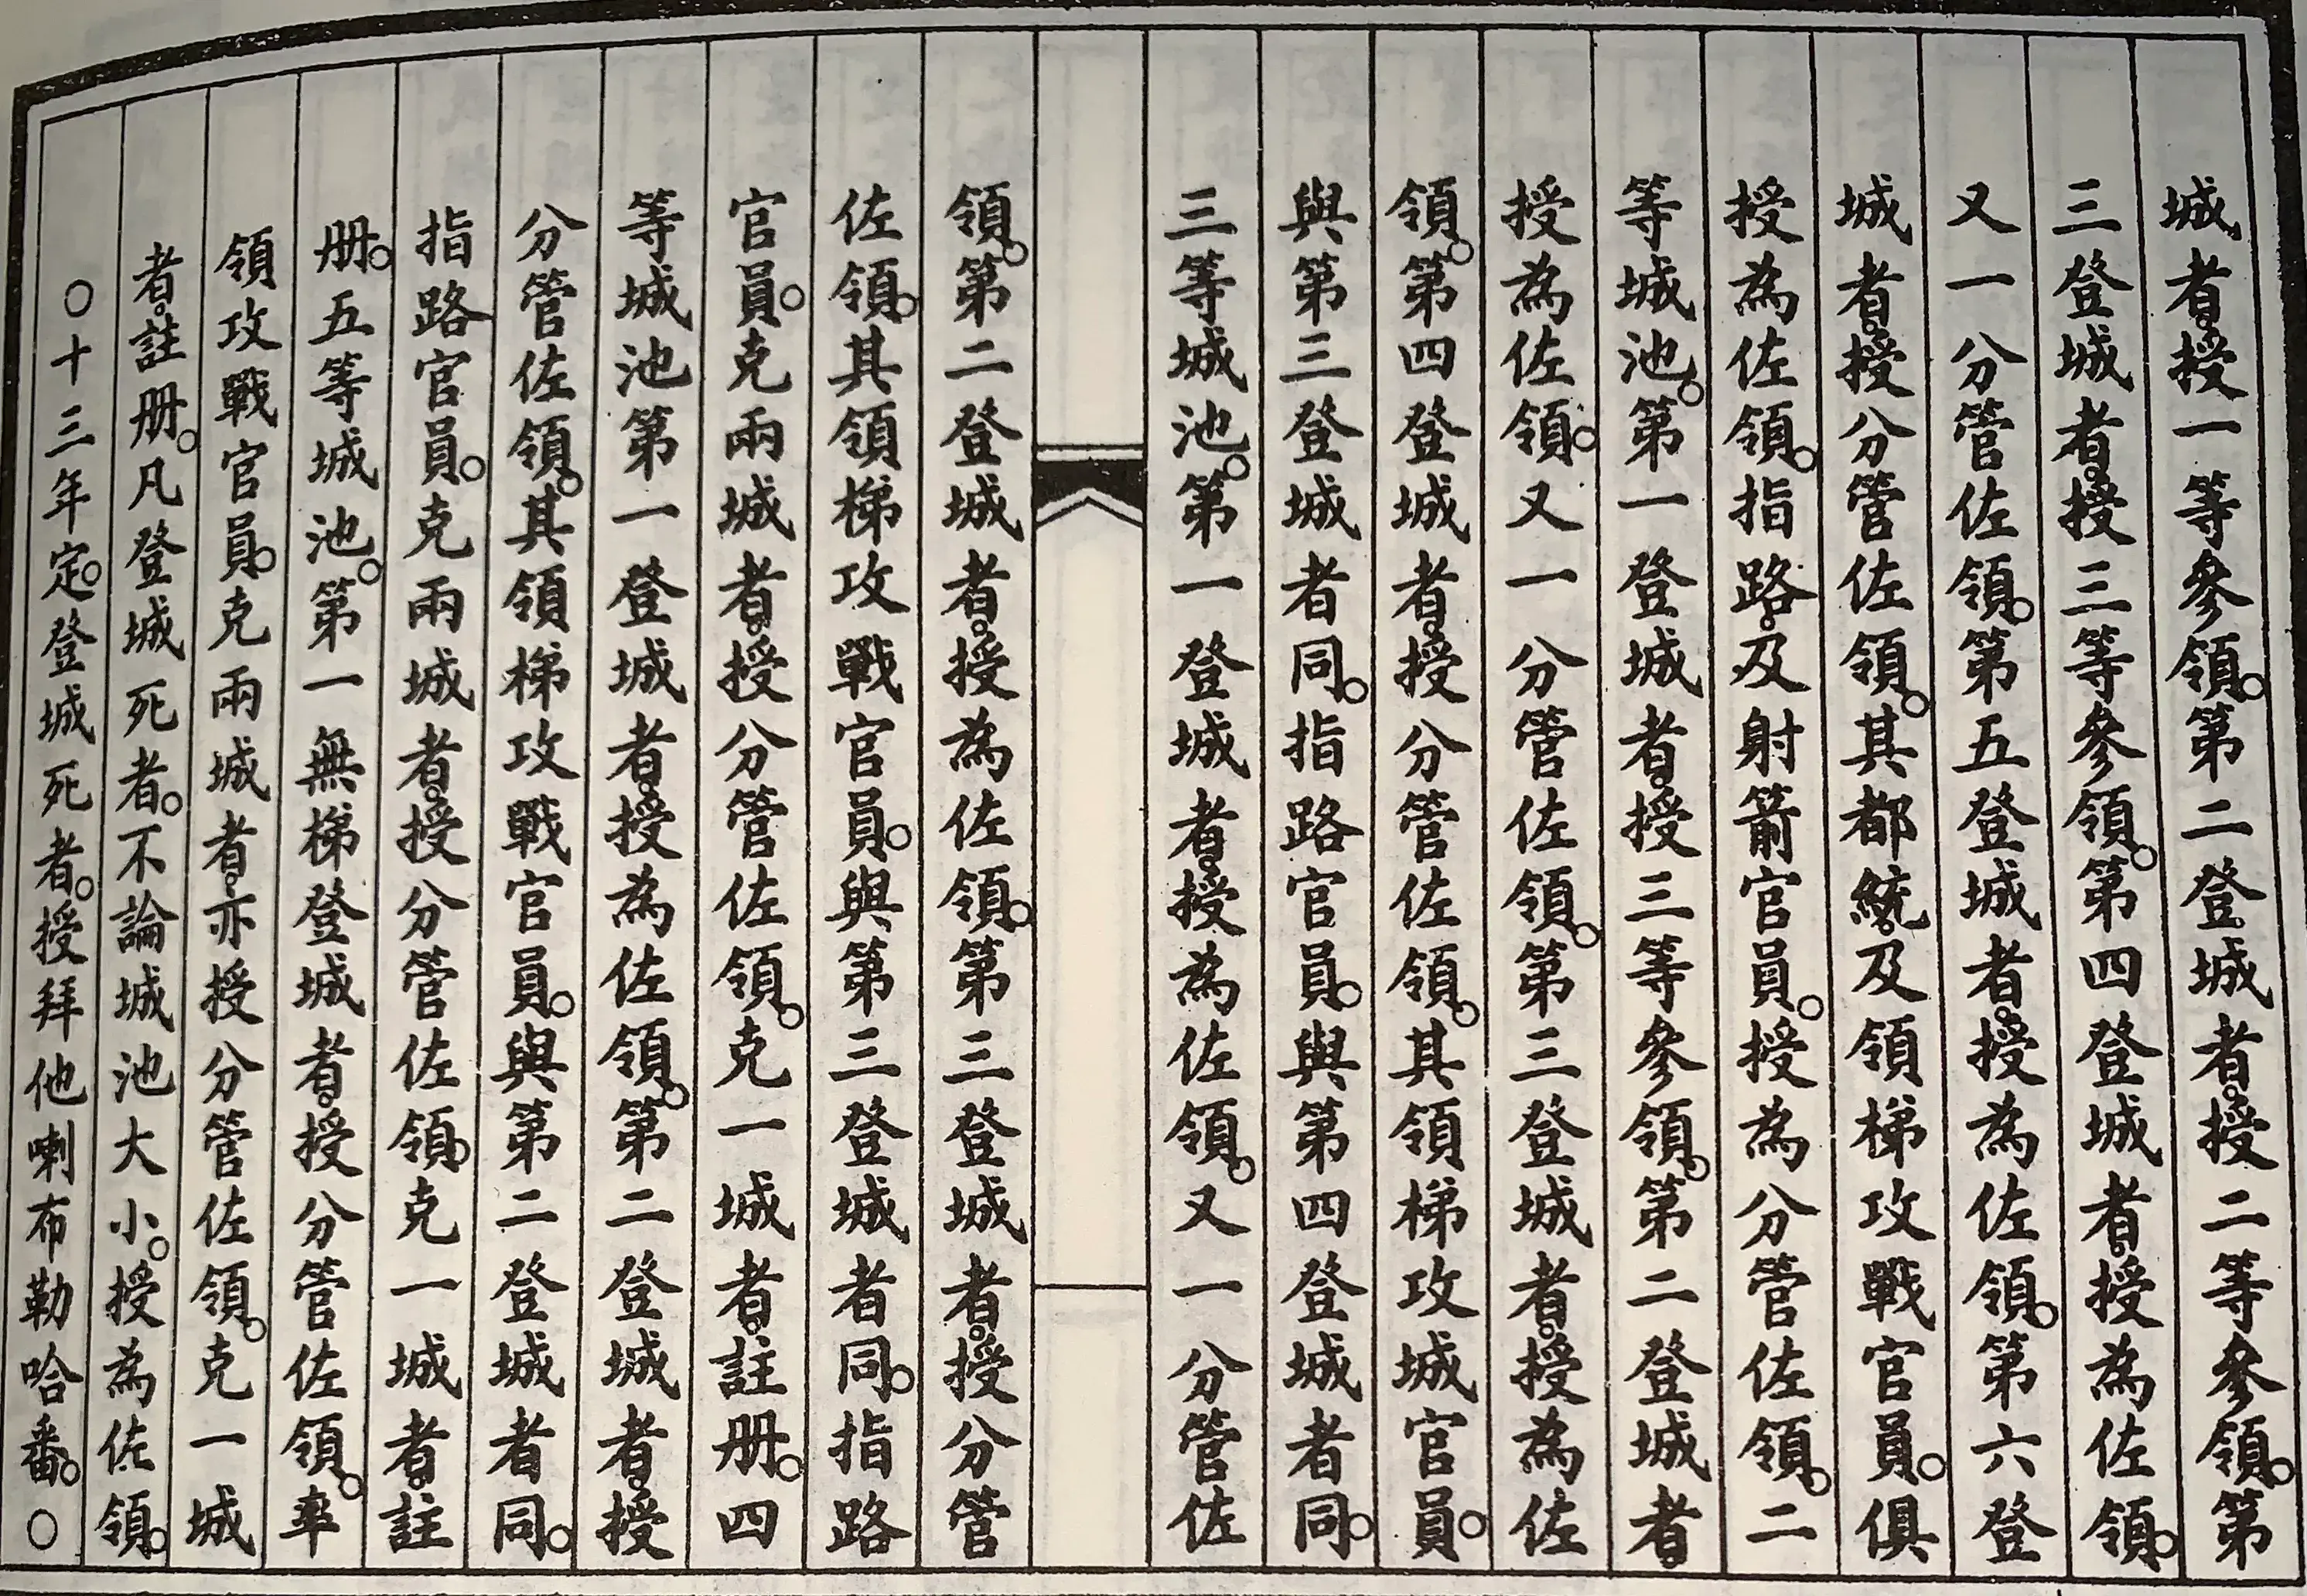 城者。授一等參領。第二登城者。授二等參領。第
三登城者。授三等參領。第四登城者。授為佐領。
又一分管佐領。第五登城者。授為佐領。第六登
城者。授分管佐領。其都統。及領梯攻戰官員。俱
授為佐領。指路。及射箭官員。授為分管佐領。二
等城池。第一登城者。授三等參領。第二登城者。
授為佐領。又一分管佐領。第三登城者。授為佐
領。第四登城者。授分管佐領。其領梯攻城官員。
與第三登城者同。指路官員。與第四登城者同。
三等城池。第一登城者。授為佐領。又一分管佐
領。第二登城者。授為佐領。第三登城者。授分管
佐領。其領梯攻戰官員。與第三登城者同。指路
官員。克兩城者。授分管佐領。克一城者。註册。四
等城池第一登城者。授為佐領。第二登城者。授
分管佐領。其領梯攻戰官員。與第二登城者同。
指路官員。克兩城者。授分管佐領。克一城者。註
册。五等城池。第一無梯登城者。授分管佐領。率
領攻戰官員。克兩城者。亦授分管佐領。克一城
者。註册。凡登城死者。不論城池大小。授為佐領。
○十三年定。登城死者。授拜他喇布勒哈番。○